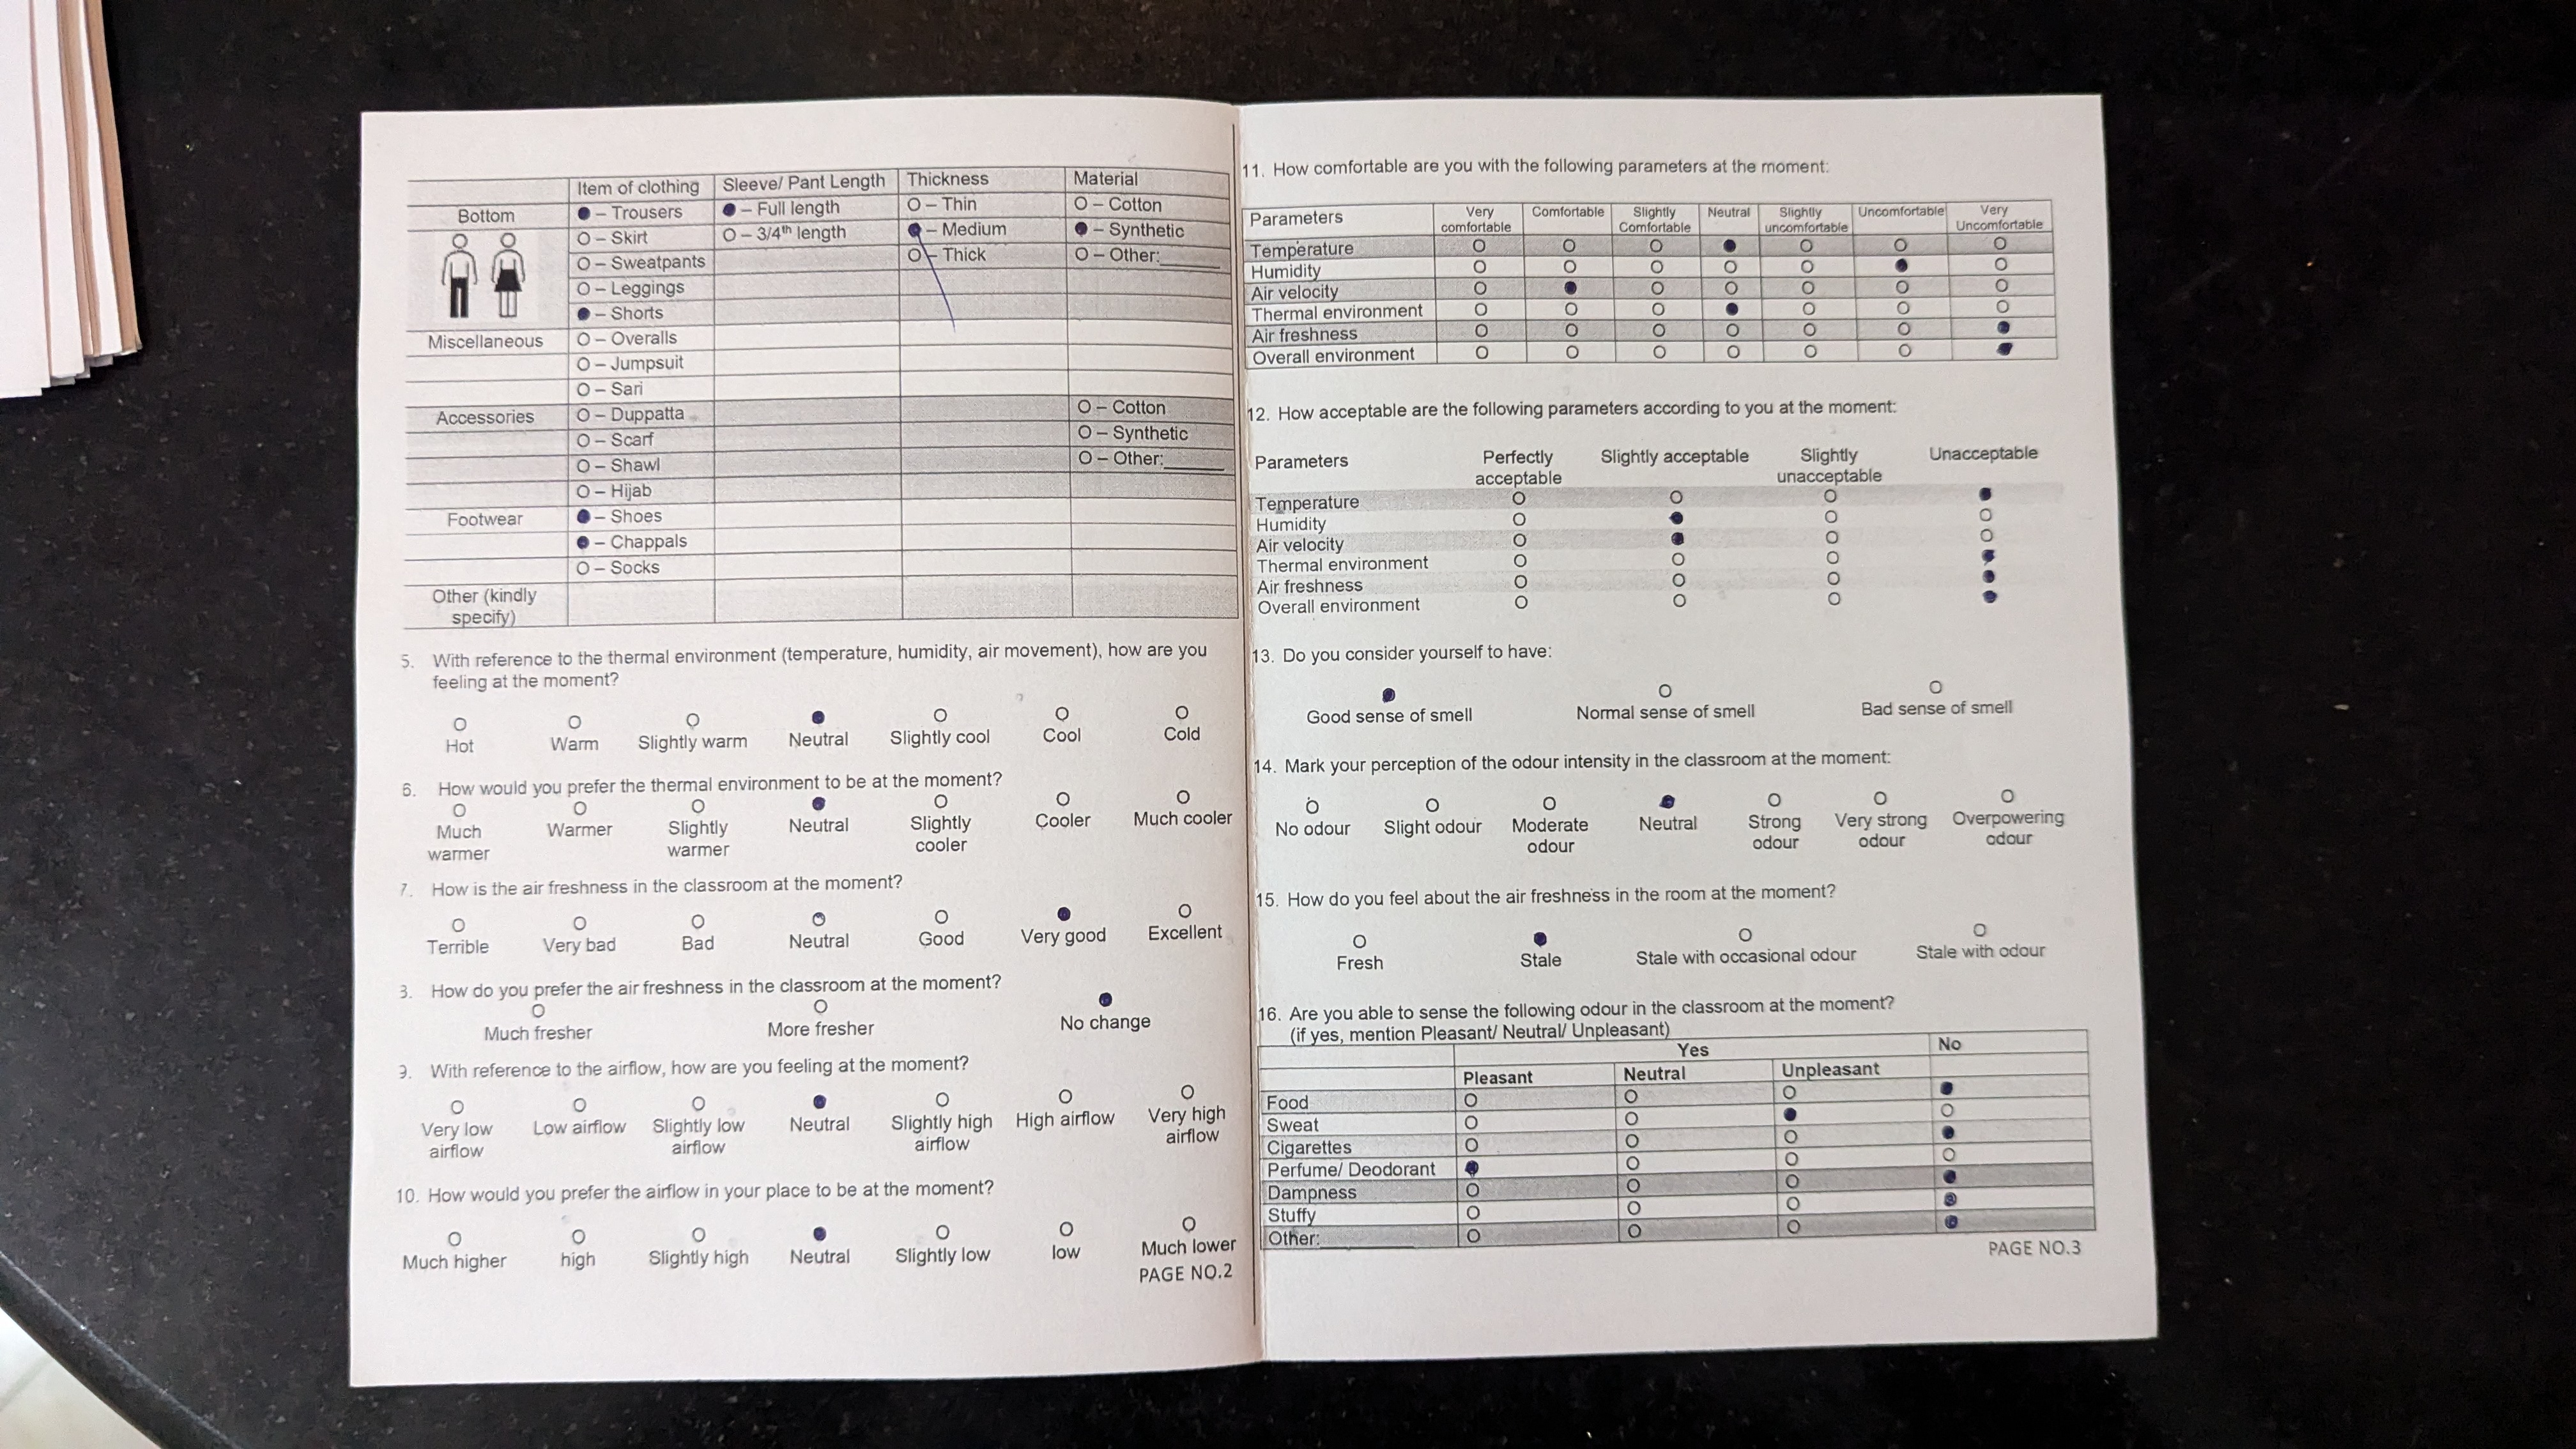 Item of clothing Sleeve/ Pant Length Thickness Material
Bottom ● – Trousers ● – Full length O – Thin O – Cotton
O – Skirt O – 3/4th length ● – Medium ● – Synthetic
O – Sweatpants O – Thick O – Other:______
O – Leggings
● – Shorts
Miscellaneous O – Overalls
O – Jumpsuit
O – Sari
Accessories O – Duppatta O – Cotton
O – Scarf O – Synthetic
O – Shawl O – Other:______
O – Hijab
Footwear ● – Shoes
● – Chappals
O – Socks
Other (kindly
specify)
5. With reference to the thermal environment (temperature, humidity, air movement), how are you
feeling at the moment?
O O O ● O O O
Hot Warm Slightly warm Neutral Slightly cool Cool Cold
6. How would you prefer the thermal environment to be at the moment?
O O O ● O O O
Much Warmer Slightly Neutral Slightly Cooler Much cooler
warmer warmer cooler
7. How is the air freshness in the classroom at the moment?
O O O O O ● O
Terrible Very bad Bad Neutral Good Very good Excellent
3. How do you prefer the air freshness in the classroom at the moment?
O O ●
Much fresher More fresher No change
9. With reference to the airflow, how are you feeling at the moment?
O O O ● O O O
Very low Low airflow Slightly low Neutral Slightly high High airflow Very high
airflow airflow airflow airflow
10. How would you prefer the airflow in your place to be at the moment?
O O O ● O O O
Much higher high Slightly high Neutral Slightly low low Much lower
PAGE NO.2
11. How comfortable are you with the following parameters at the moment:
Parameters Very Comfortable Slightly Neutral Slightly Uncomfortable Very
comfortable Comfortable uncomfortable Uncomfortable
Temperature O O O ● O O O
Humidity O O O O O ● O
Air velocity O ● O O O O O
Thermal environment O O O ● O O O
Air freshness O O O O O O ●
Overall environment O O O O O O ●
12. How acceptable are the following parameters according to you at the moment:
Parameters Perfectly Slightly acceptable Slightly Unacceptable
acceptable unacceptable
Temperature O O O ●
Humidity O ● O O
Air velocity O ● O O
Thermal environment O O O ●
Air freshness O O O ●
Overall environment O O O ●
13. Do you consider yourself to have:
● O O
Good sense of smell Normal sense of smell Bad sense of smell
14. Mark your perception of the odour intensity in the classroom at the moment:
O O O ● O O O
No odour Slight odour Moderate Neutral Strong Very strong Overpowering
odour odour odour odour
15. How do you feel about the air freshness in the room at the moment?
O ● O O
Fresh Stale Stale with occasional odour Stale with odour
16. Are you able to sense the following odour in the classroom at the moment?
(if yes, mention Pleasant/ Neutral/ Unpleasant)
Yes No
Pleasant Neutral Unpleasant
Food O O O ●
Sweat O O ● O
Cigarettes O O O ●
Perfume/ Deodorant ● O O O
Dampness O O O ●
Stuffy O O O ●
Other:________ O O O ●
PAGE NO.3